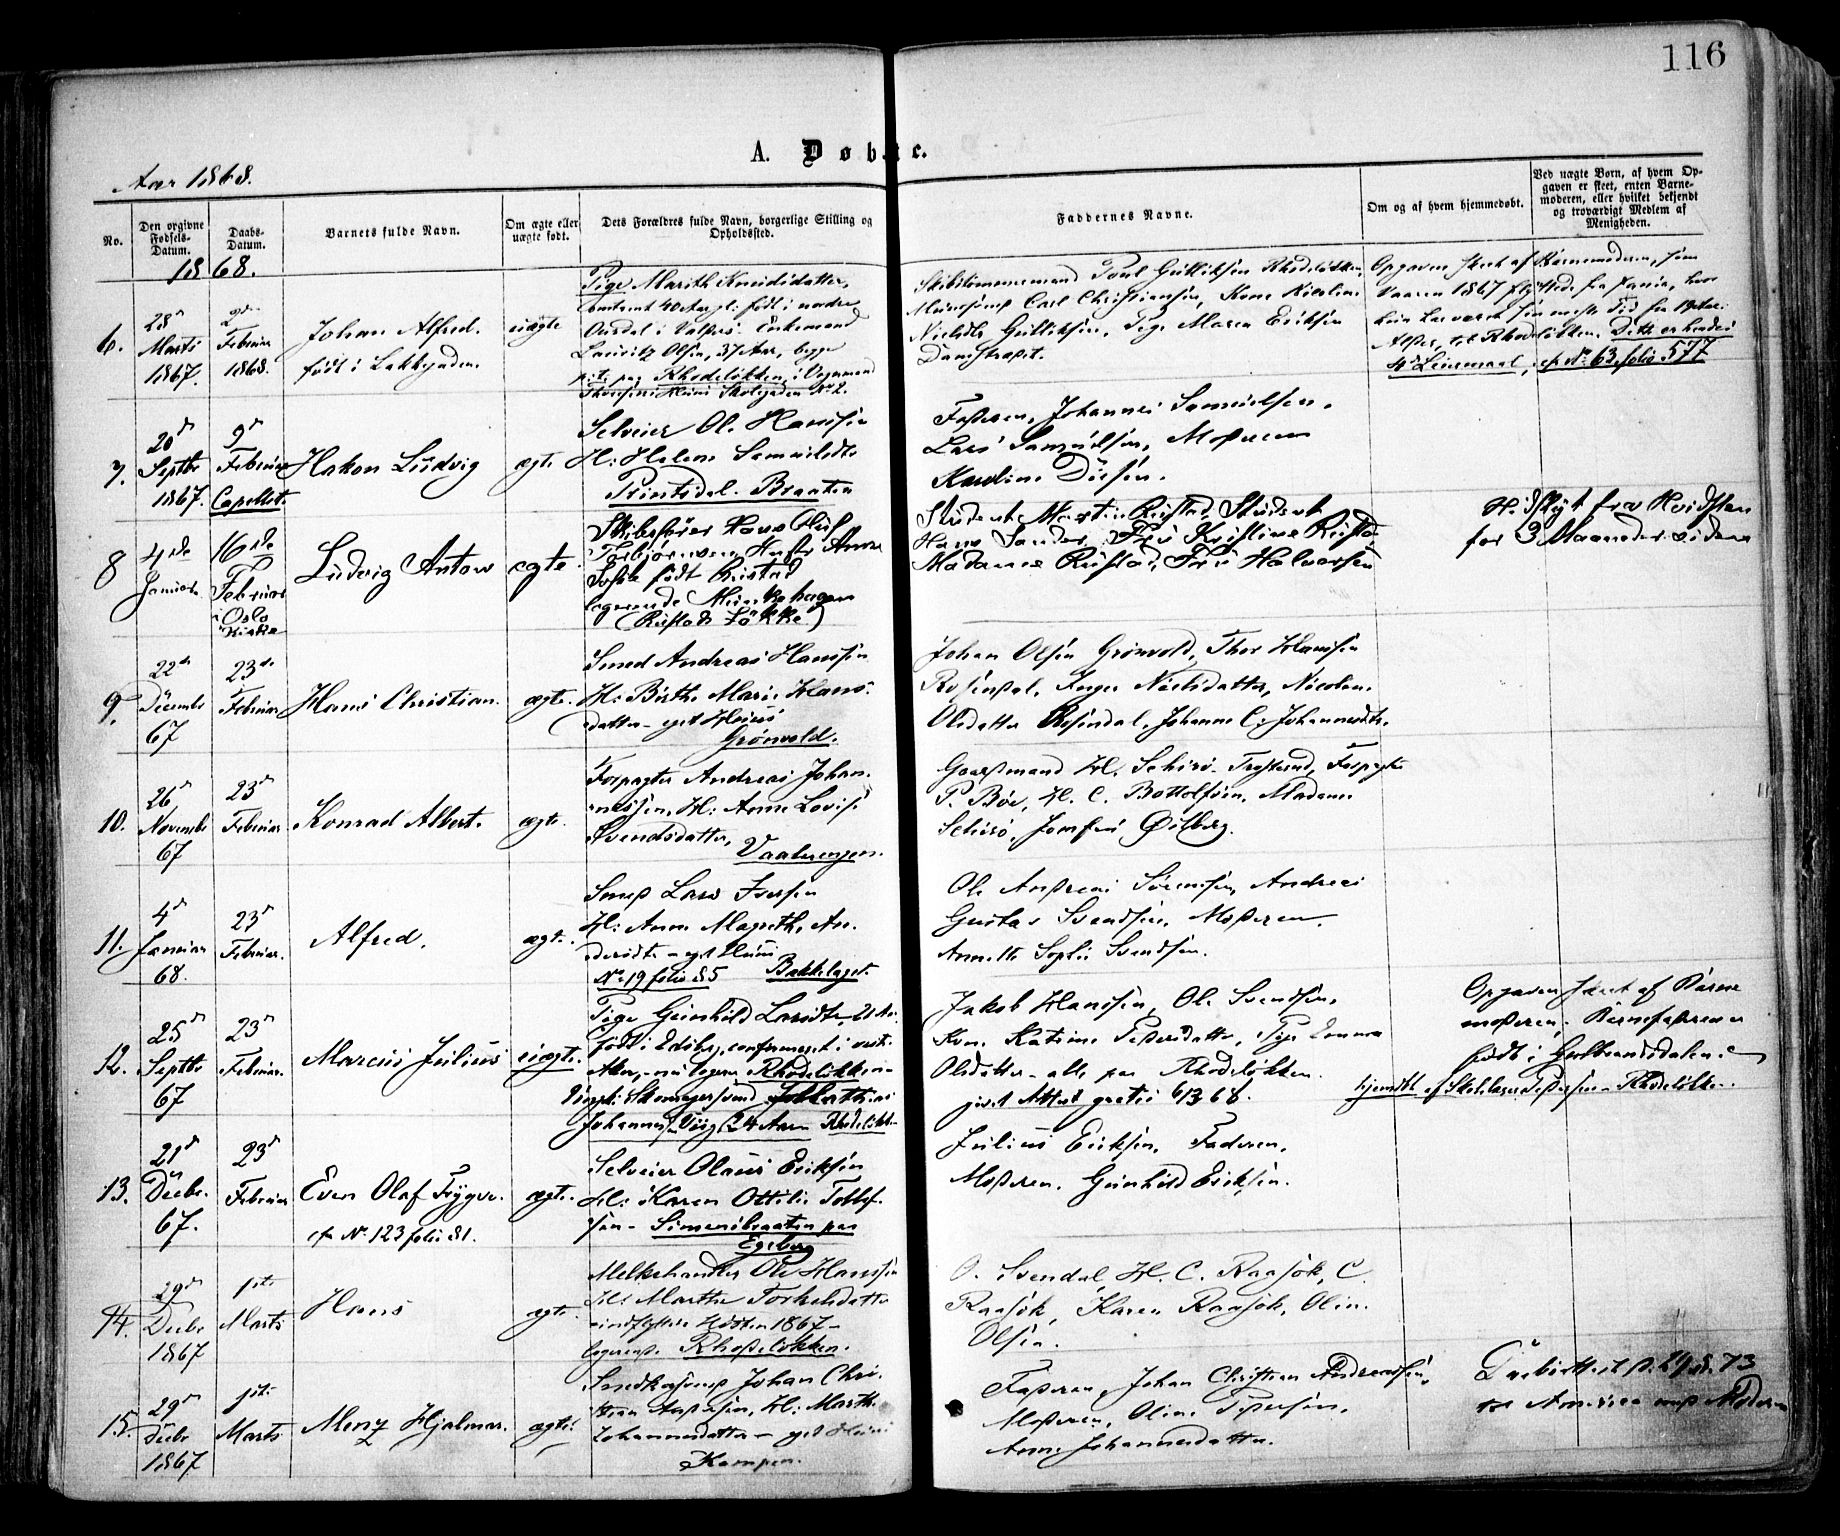 116
A. Døbte.
Aar 1868.
No.
Den opgivne Fødsels-Datum.
Daabs-Datum.
Barnets fulde Navn.
Om ægte eller uægte født.
Dets Forældres fulde Navn, borgerlige Stilling og Opholdssted.
Faddernes Navne.
Om og af hvem hjemmedøbt.
Ved uægte Børn, af hvem Opgaven er skeet, enten Barnemoderen, eller hvilket bekjendt og troværdigt Medlem af Menigheden.
1868.
6.
28de
Marts
1867.
2den
Februar
1868.
Johan Alfred.
født i Lakkegaden.
uægte
Pige Marith Knudsdatter,
omtrent 40 Aar gl. født i nordre
Aardal i Valders. Enkemand
Lauritz Olsen, 37 Aar, begge
paa Rhodeløkken, i Vognmand
Skolegaden No 2.
Skibstømmermand Poul Gulliksen Rhodeløkken,
Carl Christiansen, Kone Nicoline
Gulliksen, Pige Maren Eriksen
Opgaven skeet af Barnemoderen, som
Vaaren 1867 fra
til Rhodeløkken. Dette er hendes
4de Leiermaal, cf No 63 folio 577
7.
20de
Septbr
1867.
9de
Februar
Capellet.
Hakon Ludvig
ægte
Selveier Ole Hansen
H: Helene Samuelsdtr
Printsdal. Braaten
Faderen, Johannes Samuelsen,
Lars Samuelsen, Moderen
Karoline Olsen.
8
4de
Januar
16de
Februar
i Oslo
Kirke
Ludvig Anton
ægte.
Skibsfører Hans Oluf
Torbjørnsen, Hustr Anna
Sofie født Rustad
logerende Munkehagen
(Rustads Løkke)
Student Martin Rustad, Student
Hans Sander, Frø Kristine Rustad,
Madame Rustad, Frø Halvorsen
Hidflyt fra Hvidsten
for 3 Maaneder siden
9.
22de
Decembr
67
23de
Februar
Hans Christian.
ægte.
Smed Andreas Hansen
H: Birthe Marie Hans-
datter - eget Huus
Grønvold.
Johan Olsen Grønvold, Thor Hansen
Rosendal, Inger Nielsdatter, Nicoline
Olsdatter Rosendal, Johanne C. Johannesdtr.
10.
26de
Novembr
67
23de
Februar
Konrad Albert.
ægte.
Forpagter Andreas Johan-
nessen, H: Anne Lovise
Svendsdatter,
Vaalerengen.
Gaardmand H. Schirø. Forpagter
P. Bøe, H. C. Bottolfsen, Madame
Schirø, Jomfru Østberg.
11.
4de
Januar
68.
23de
Februar.
Alfred.
ægte.
Smed Lars Iversen
H: Anne Magrethe An-
dersdtr - eget Huus
No 19 folio 85 Bakkelaget
Ole Andreas Sørensen, Andreas
Gustav Svendsen, Moderen
Annette Sophie Svendsen.
12.
25de
Septbr
67
23de
Februar.
Marcus Julius
uægte.
Pige Gunhild Larsdtr, 21 Aar,
født i Edsberg, confirmeret i vestre
Aker, - nu logerer Rhodeløkken -
Ungk: Skomagersvend
Johannes 24 Aar Rhodeløkken
Jakob Hansen, Ole Svendsen,
Kone Katrine Pedersdatter, Pige Emma
Olsdatter - alle paa Rhodeløkken.
givet Attest gratis 6/3 68.
Opgaven skeet af Barne
moderen. Barnefaderen er
født i Gulbrandsdalen.
hjemdbt af Rhodeløkken.
13.
21de
Decbr.
67.
23de
Februar
Even Olaf Trygve.
cf No 123 folio 81.
ægte.
Selveier Olaus Eriksen
H: Karen Ottilie Tollef-
sen - Simensbraaten paa
Egeberg
Julius Eriksen, Faderen,
Moderen, Gunhild Eriksen.
14.
29de
Decbr
1867
1ste
Marts
Hans
ægte.
Melkehandler Ole Hansen
H: Marthe Torkelsdatter
indflyttede Høsten 1867 -
logerende. Rhodeløkken.
O. Svendal, H. C. Raasok, C.
Raasok, Karen Raasok, Oline
Olsen.
15.
29de
Decbr
1867
1ste
Marts
Menz Hjalmar.
ægte.
Snedkersvend Johan Chri-
stian Andersen, H: Marthe
Johannesdatter - eget Huus
Kampen.
Faderen, Johan Christian Andreassen,
Moderen, Oline Pedersen,
Anne Johannesdatter.
Daabsattest d. 29.8.73
til Amerika med Moderen